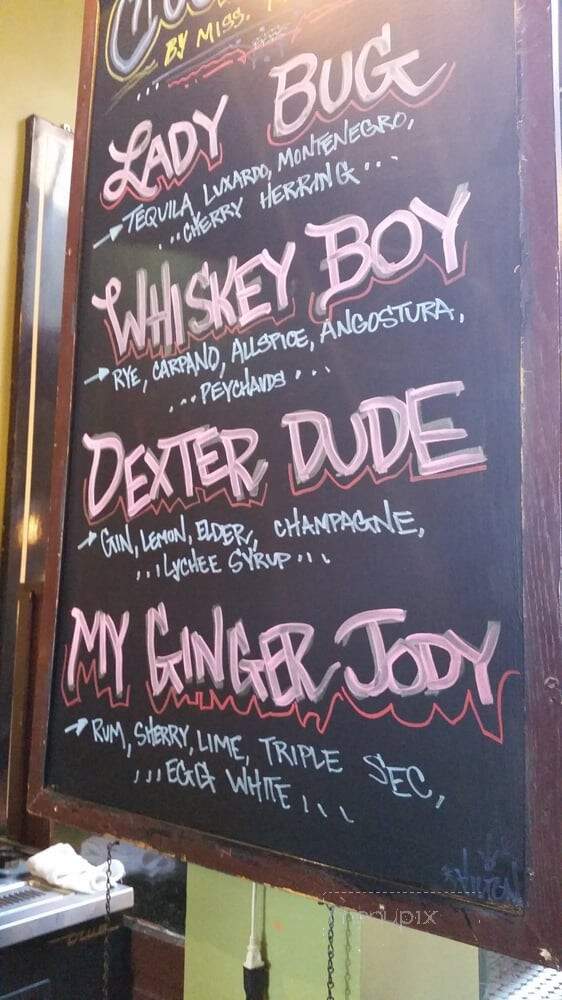 BY MISS.
LADY BUG
TEQUILA LUXARDO, MONTENEGRO,
...CHERRY HERRING...
WHISKEY BOY
RYE, CARPANO, ALLSPICE, ANGOSTURA,
...PEYCHAUDS...
DEXTER DUDE
GIN, LEMON, ELDER, CHAMPAGNE,
...LYCHEE SYRUP...
MY GINGER JODY
RUM, SHERRY, LIME, TRIPLE SEC,
...EGG WHITE...
menupix